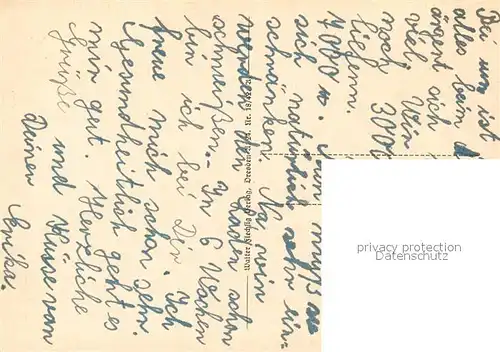 Bei uns ist
alles beim
ärgert sich
viel. Wir
noch 3000
liefern.
4000 w. nun muß sie
sich natürlich sehr ein-
schränken. Na, wir
werden den Laden schon
schmeißen. - In 6 Wochen
bin ich bei Dir. Ich
freue mich schon sehr.
Gesundheitlich geht es
mir gut. Herzliche
Grüße und Küsse von
Deiner Erika.
Walter Flechsig Verlag, Dresden
privacy protection
Datenschutz